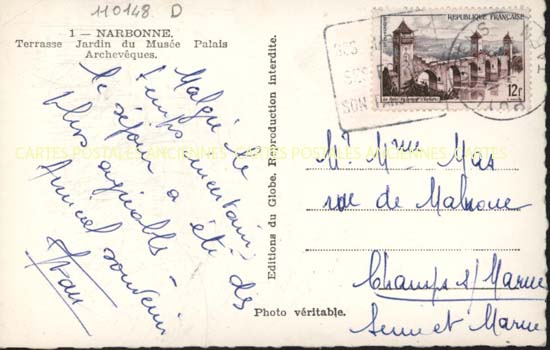 110148 D
1 — NARBONNE.
Terrasse Jardin du Musée Palais
Archevêques.
Malgré le
temps
le séjour a été des
plus agréables -
Amical souvenir
Editions du Globe. Reproduction interdite.
Photo véritable.
REPUBLIQUE FRANÇAISE
12f
SES
SES
SON
CARTES POSTALES ANCIENNES
CARTES POSTALES ANCIENNES
Mr Mme Mas
rue de Malnoue
Champs s/ Marne
Seine et Marne